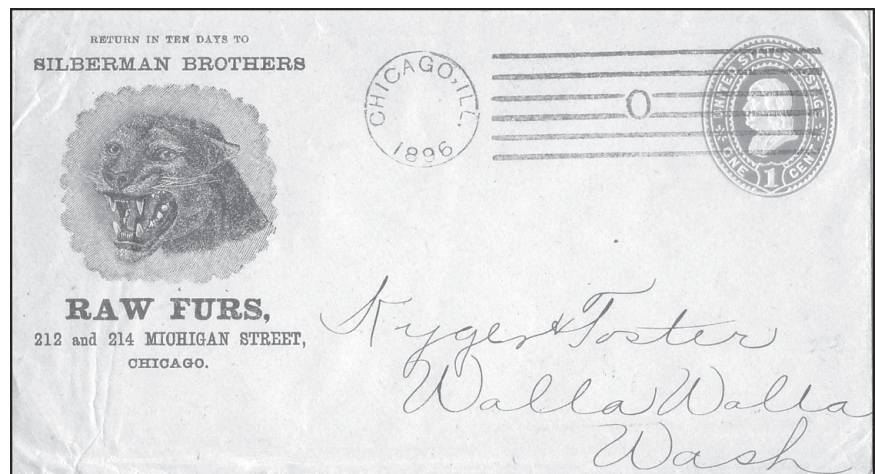 RETURN IN TEN DAYS TO
SILBERMAN BROTHERS
RAW FURS,
212 and 214 MICHIGAN STREET,
CHICAGO.
CHICAGO, ILL.
1896
O
UNITED STATES POSTAGE
ONE 1 CENT
Kyger & Foster
Walla Walla
Wash